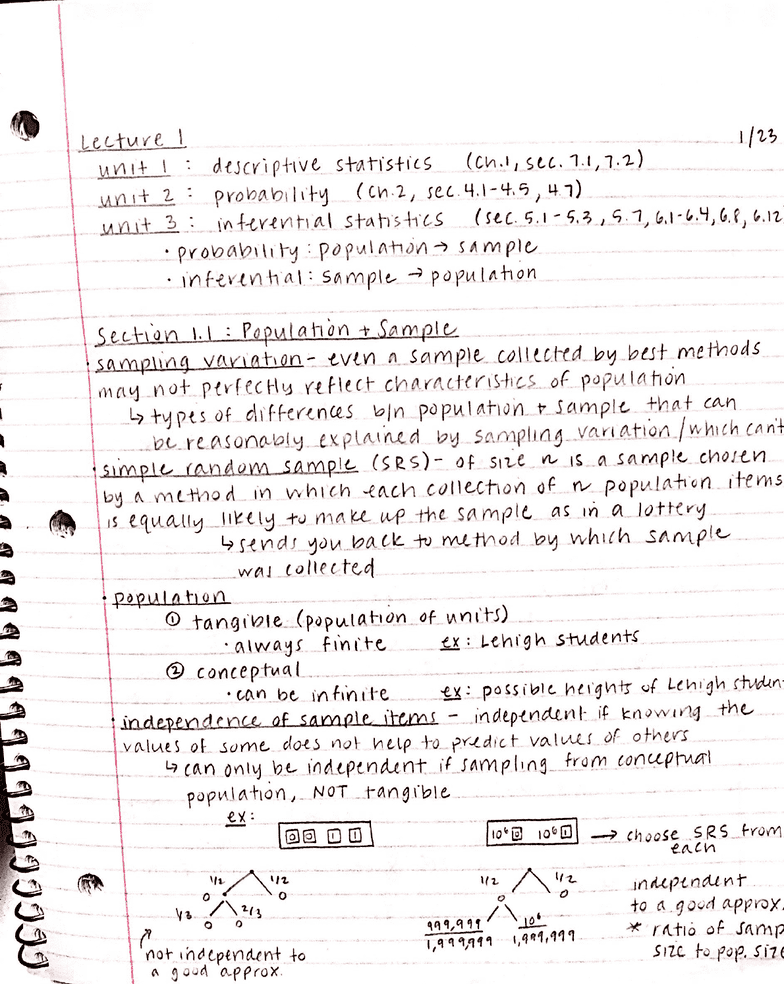 Lecture 1
1/23
unit 1 : descriptive statistics (ch.1, sec. 7.1, 7.2)
unit 2 : probability (ch.2, sec. 4.1-4.5, 4.7)
unit 3 : inferential statistics (sec. 5.1-5.3, 5.7, 6.1-6.4, 6.8, 6.12
· probability : population → sample
· inferential : sample → population
Section 1.1 : Population + Sample
· sampling variation - even a sample collected by best methods
may not perfectly reflect characteristics of population
↳ types of differences b/n population + sample that can
be reasonably explained by sampling variation / which can't
· simple random sample (SRS) - of size n is a sample chosen
by a method in which each collection of n population items
is equally likely to make up the sample as in a lottery
↳ sends you back to method by which sample
was collected
· population
① tangible (population of units)
· always finite ex: Lehigh students
② conceptual
· can be infinite ex: possible heights of Lehigh studen
· independence of sample items - independent if knowing the
values of some does not help to predict values of others
↳ can only be independent if sampling from conceptual
population, NOT tangible
ex:
0 0 1 1
10⁶ 0 10⁶ 1 → choose SRS from
each
1/2 1/2
0 0
1/3 2/3
0 0
not independent to
a good approx.
1/2 1/2
0 0
999,999/1,999,999 10⁶/1,999,999
independent
to a good approx.
* ratio of samp
size to pop. size